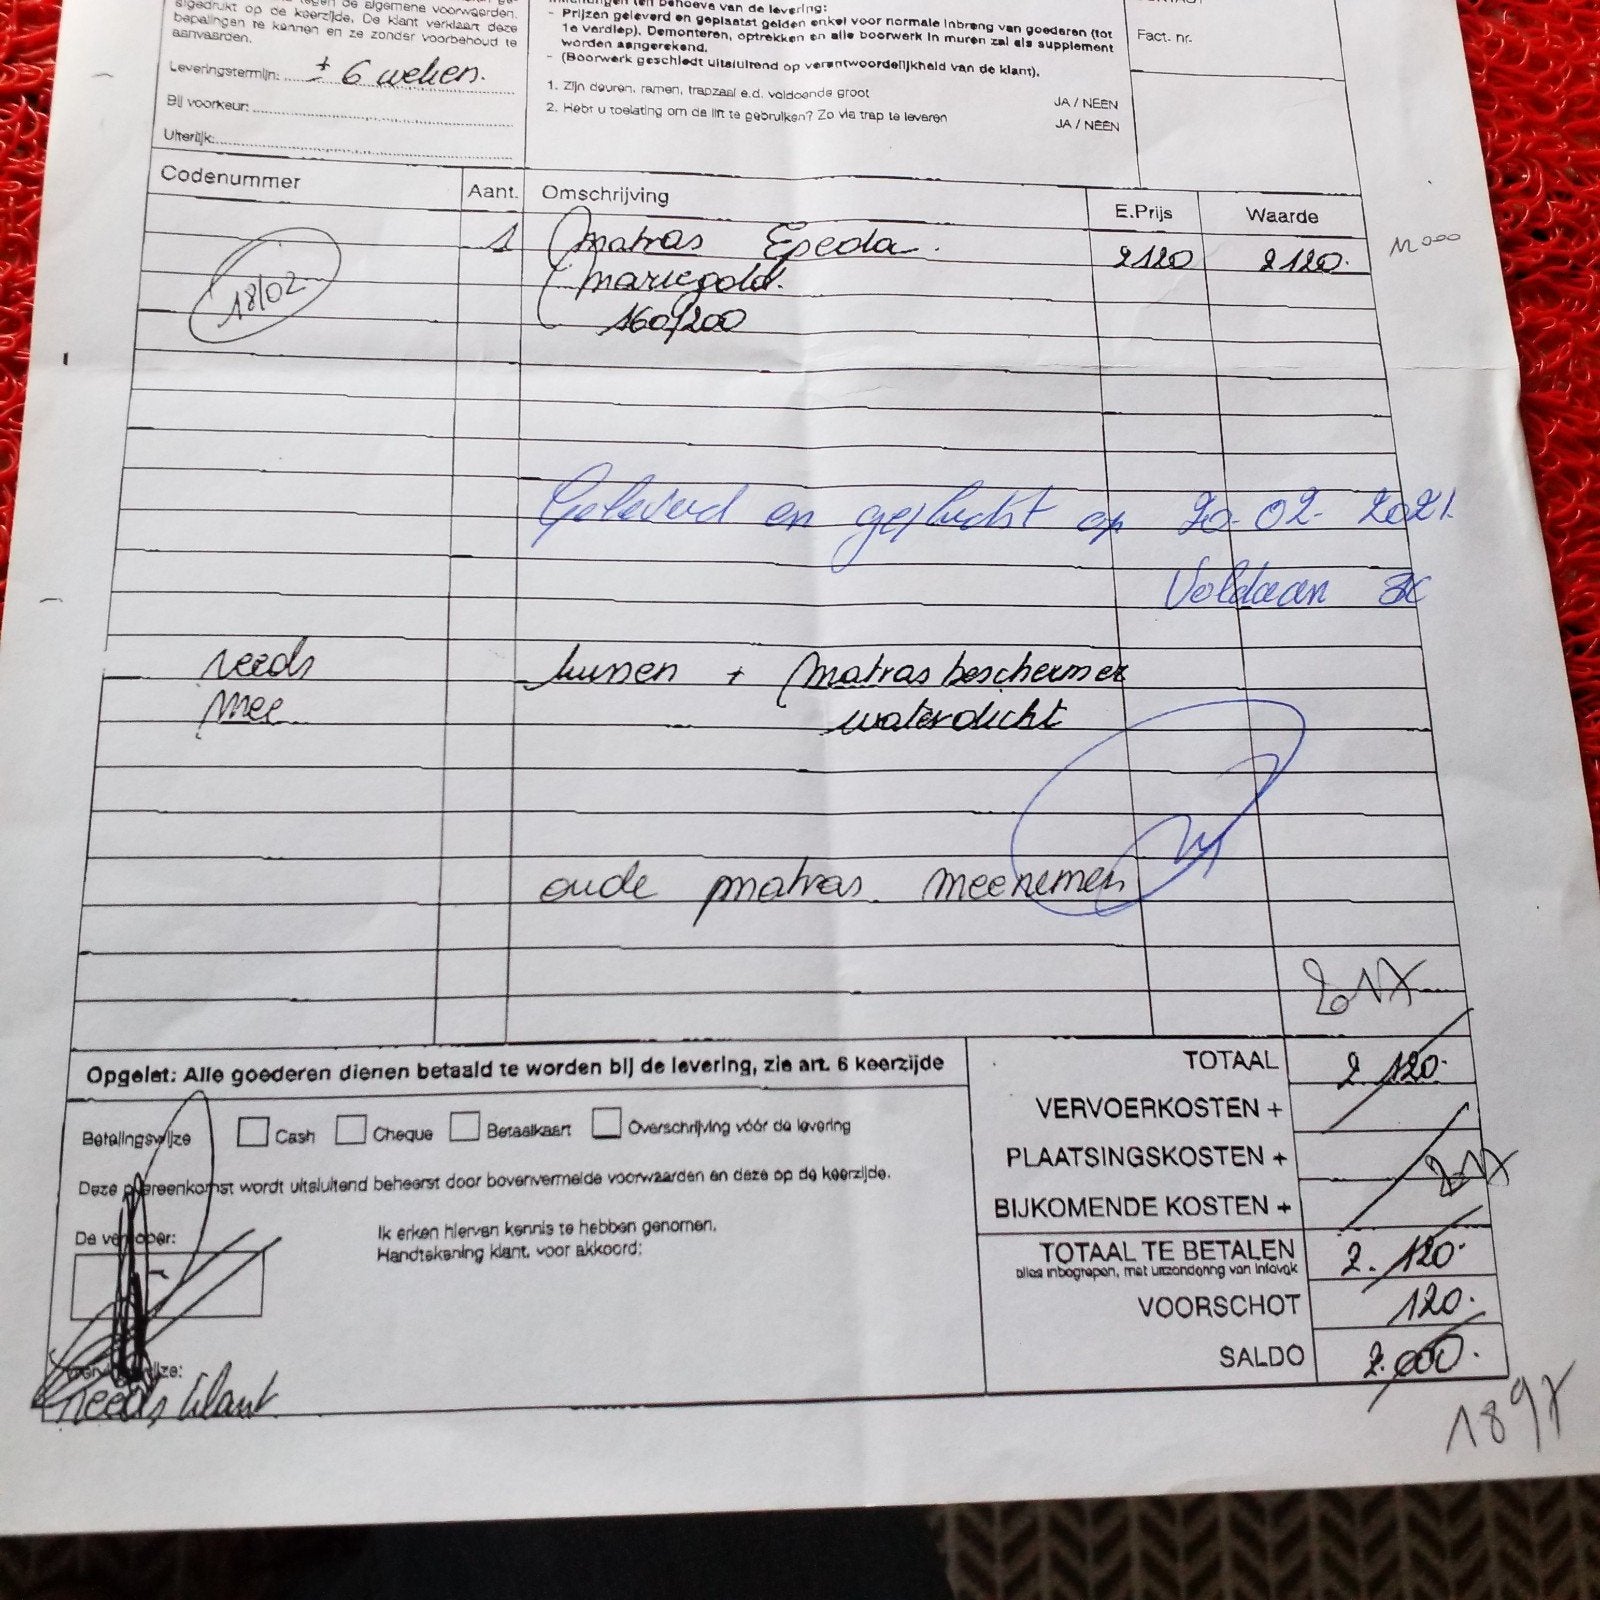 tegen de algemene voorwaarden,
afgedrukt op de keerzijde. De klant verklaart deze
bepalingen te kennen en ze zonder voorbehoud te
aanvaarden.
Leveringstermijn: ± 6 weken.
Bij voorkeur:
Uiterlijk:
ten behoeve van de levering:
- Prijzen geleverd en geplaatst gelden enkel voor normale inbreng van goederen (tot
1e verdiep). Demonteren, optrekken en alle boorwerk in muren zal als supplement
worden aangerekend.
- (Boorwerk geschiedt uitsluitend op verantwoordelijkheid van de klant).
1. Zijn deuren, ramen, trapzaal e.d. voldoende groot JA / NEEN
2. Hebt u toelating om de lift te gebruiken? Zo via trap te leveren JA / NEEN
Fact. nr.
Codenummer Aant. Omschrijving E.Prijs Waarde
1 Matras Epeda. 2120 2120.
18/02 Mariegold.
160/200
Geleverd en geplaatst op 20-02-2021.
Voldaan
reeds kussen + Matrasbeschermer
mee waterdicht
oude matras meenemen
Opgelet: Alle goederen dienen betaald te worden bij de levering, zie art. 6 keerzijde
Betalingswijze Cash Cheque Betaalkaart Overschrijving vóór de levering
Deze overeenkomst wordt uitsluitend beheerst door bovenvermelde voorwaarden en deze op de keerzijde.
De verkoper: Ik erken hiervan kennis te hebben genomen.
Handtekening klant, voor akkoord:
reeds klant
2017
TOTAAL 2.120.
VERVOERKOSTEN +
PLAATSINGSKOSTEN + 2017
BIJKOMENDE KOSTEN +
TOTAAL TE BETALEN 2.120.
alles inbegrepen, met uitzondering van Intavak
VOORSCHOT 120.
SALDO 2.000.
1897